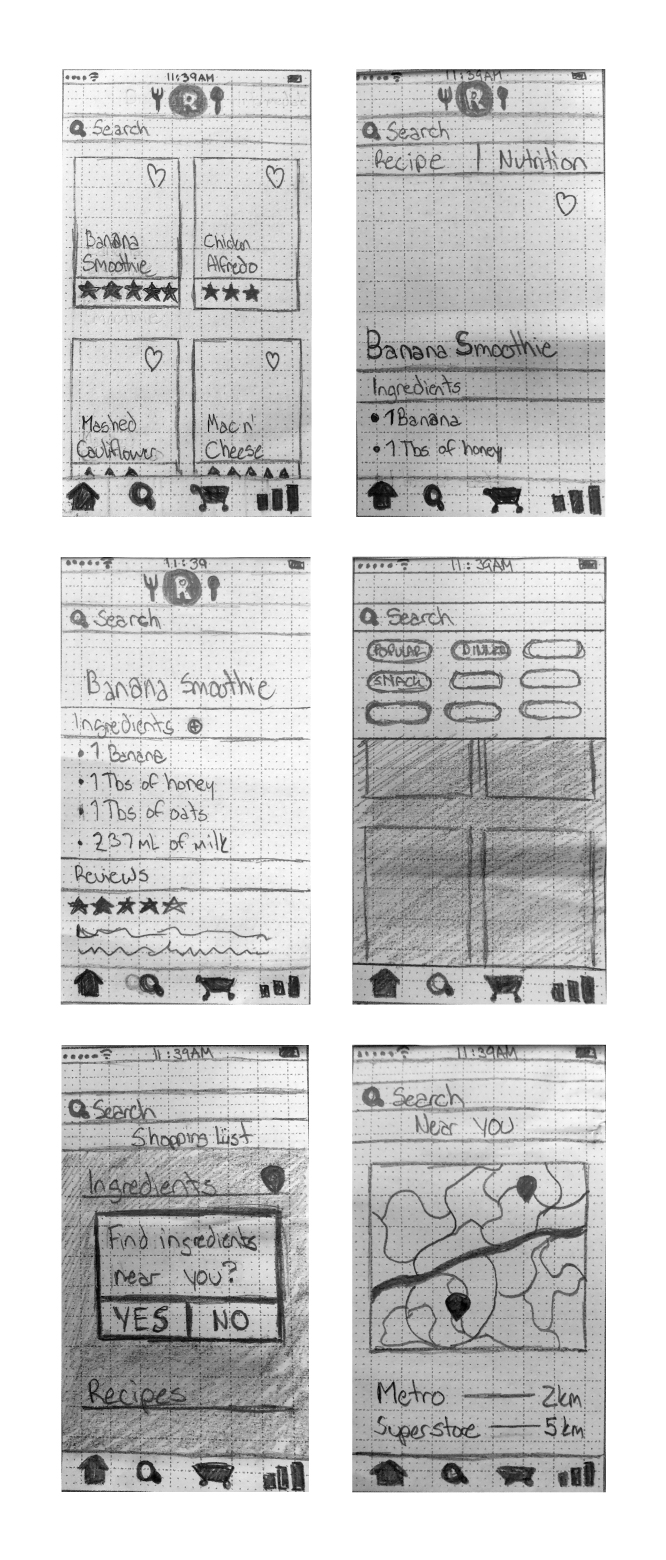 11:39AM
R
Search
Banana
Smoothie
Chicken
Alfredo
Mashed
Cauliflower
Mac n'
Cheese
11:39AM
R
Search
Recipe | Nutrition
Banana Smoothie
Ingredients
• 1 Banana
• 1 Tbs of honey
11:39
R
Search
Banana Smoothie
Ingredients
• 1 Banana
• 1 Tbs of honey
• 1 Tbs of oats
• 237 mL of milk
Reviews
11:39AM
Search
POPULAR DINNER
SNACK
11:39AM
Search
Shopping List
Ingredients
Find ingredients
near you?
YES NO
Recipes
11:39AM
Search
Near you
Metro 2km
Superstore 5km